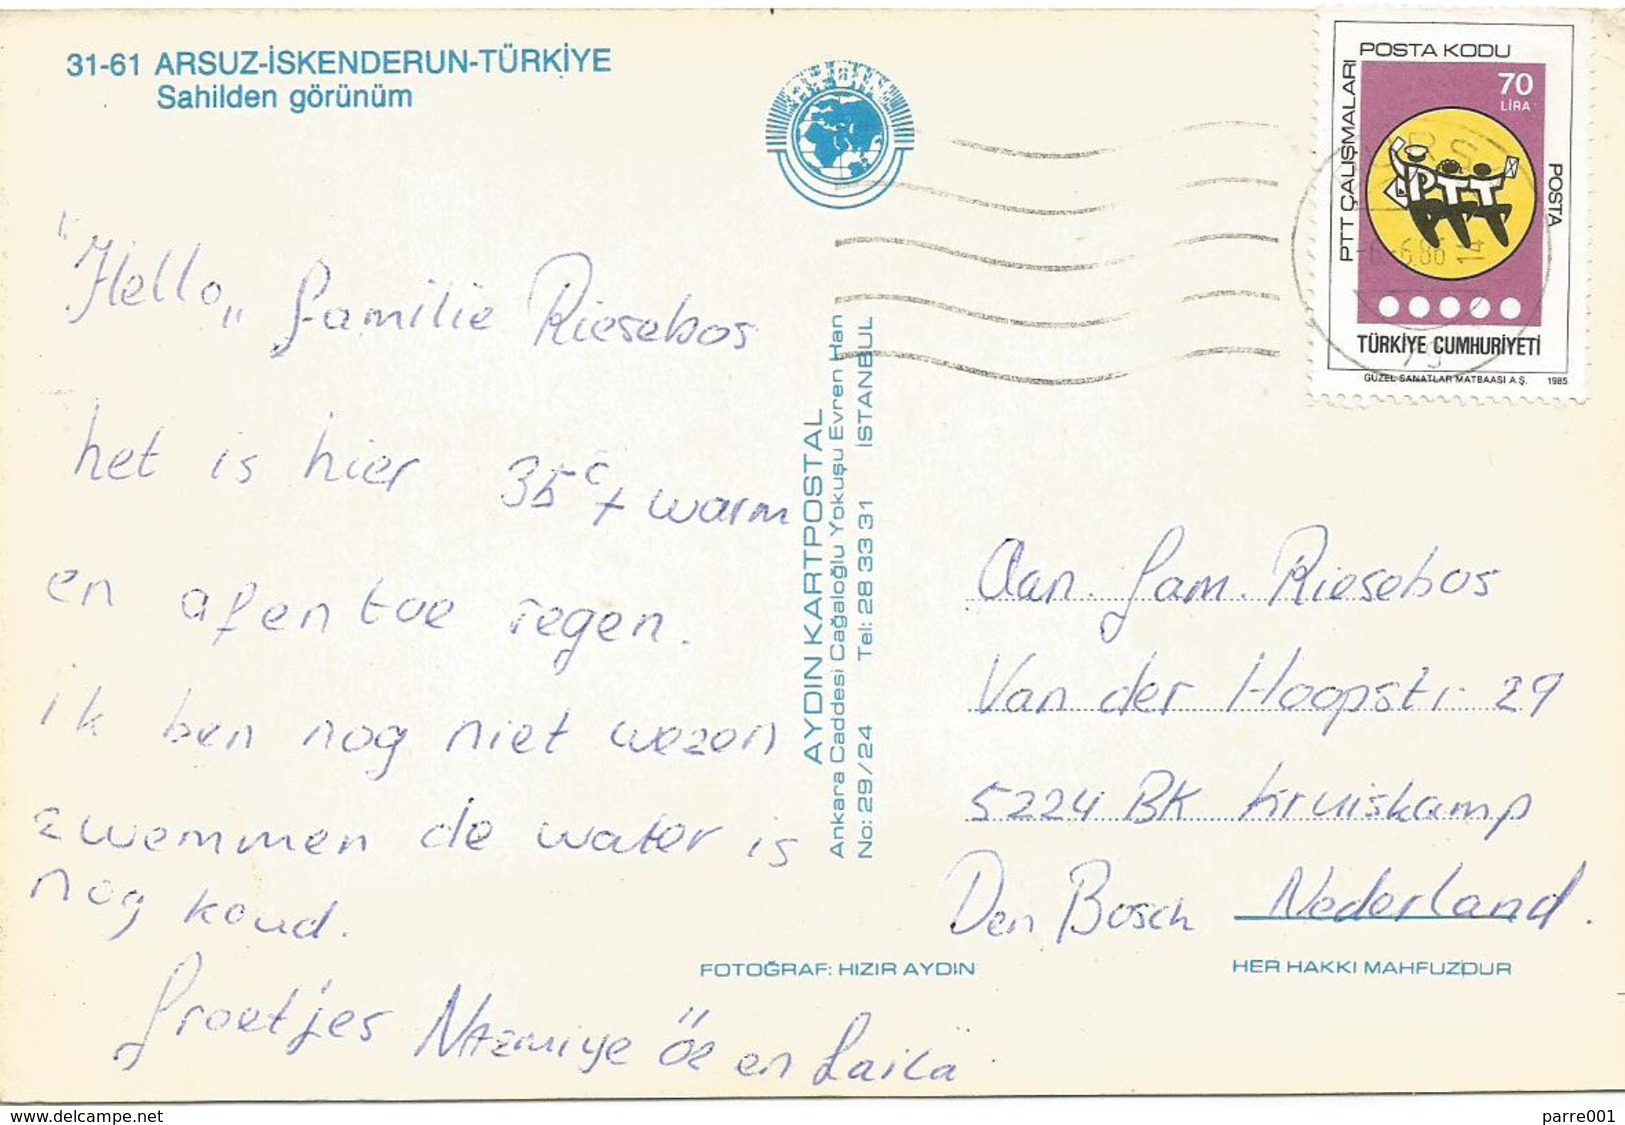 31-61 ARSUZ-İSKENDERUN-TÜRKİYE
Sahilden görünüm
"Hello,, familie Riesebos
het is hier 35°C + warm
en af en toe regen.
ik ben nog niet wezen
zwemmen de water is
nog koud.
Groetjes Nazmiye Öz en Laila
AYDIN
AYDIN KARTPOSTAL
Ankara Caddesi Cağaloğlu Yokuşu Evren Han
No: 29/24 Tel: 28 33 31 İSTANBUL
FOTOĞRAF: HIZIR AYDIN
POSTA KODU
PTT ÇALIŞMALARI
70
LİRA
PTT
POSTA
-6.-6.86 14
TÜRKİYE CUMHURİYETİ
GÜZEL SANATLAR MATBAASI A.Ş. 1985
Aan. fam. Riesebos
Van der Hoopstr 29
5224 BK Kruiskamp
Den Bosch Nederland.
HER HAKKI MAHFUZDUR
www.delcampe.net
parre001